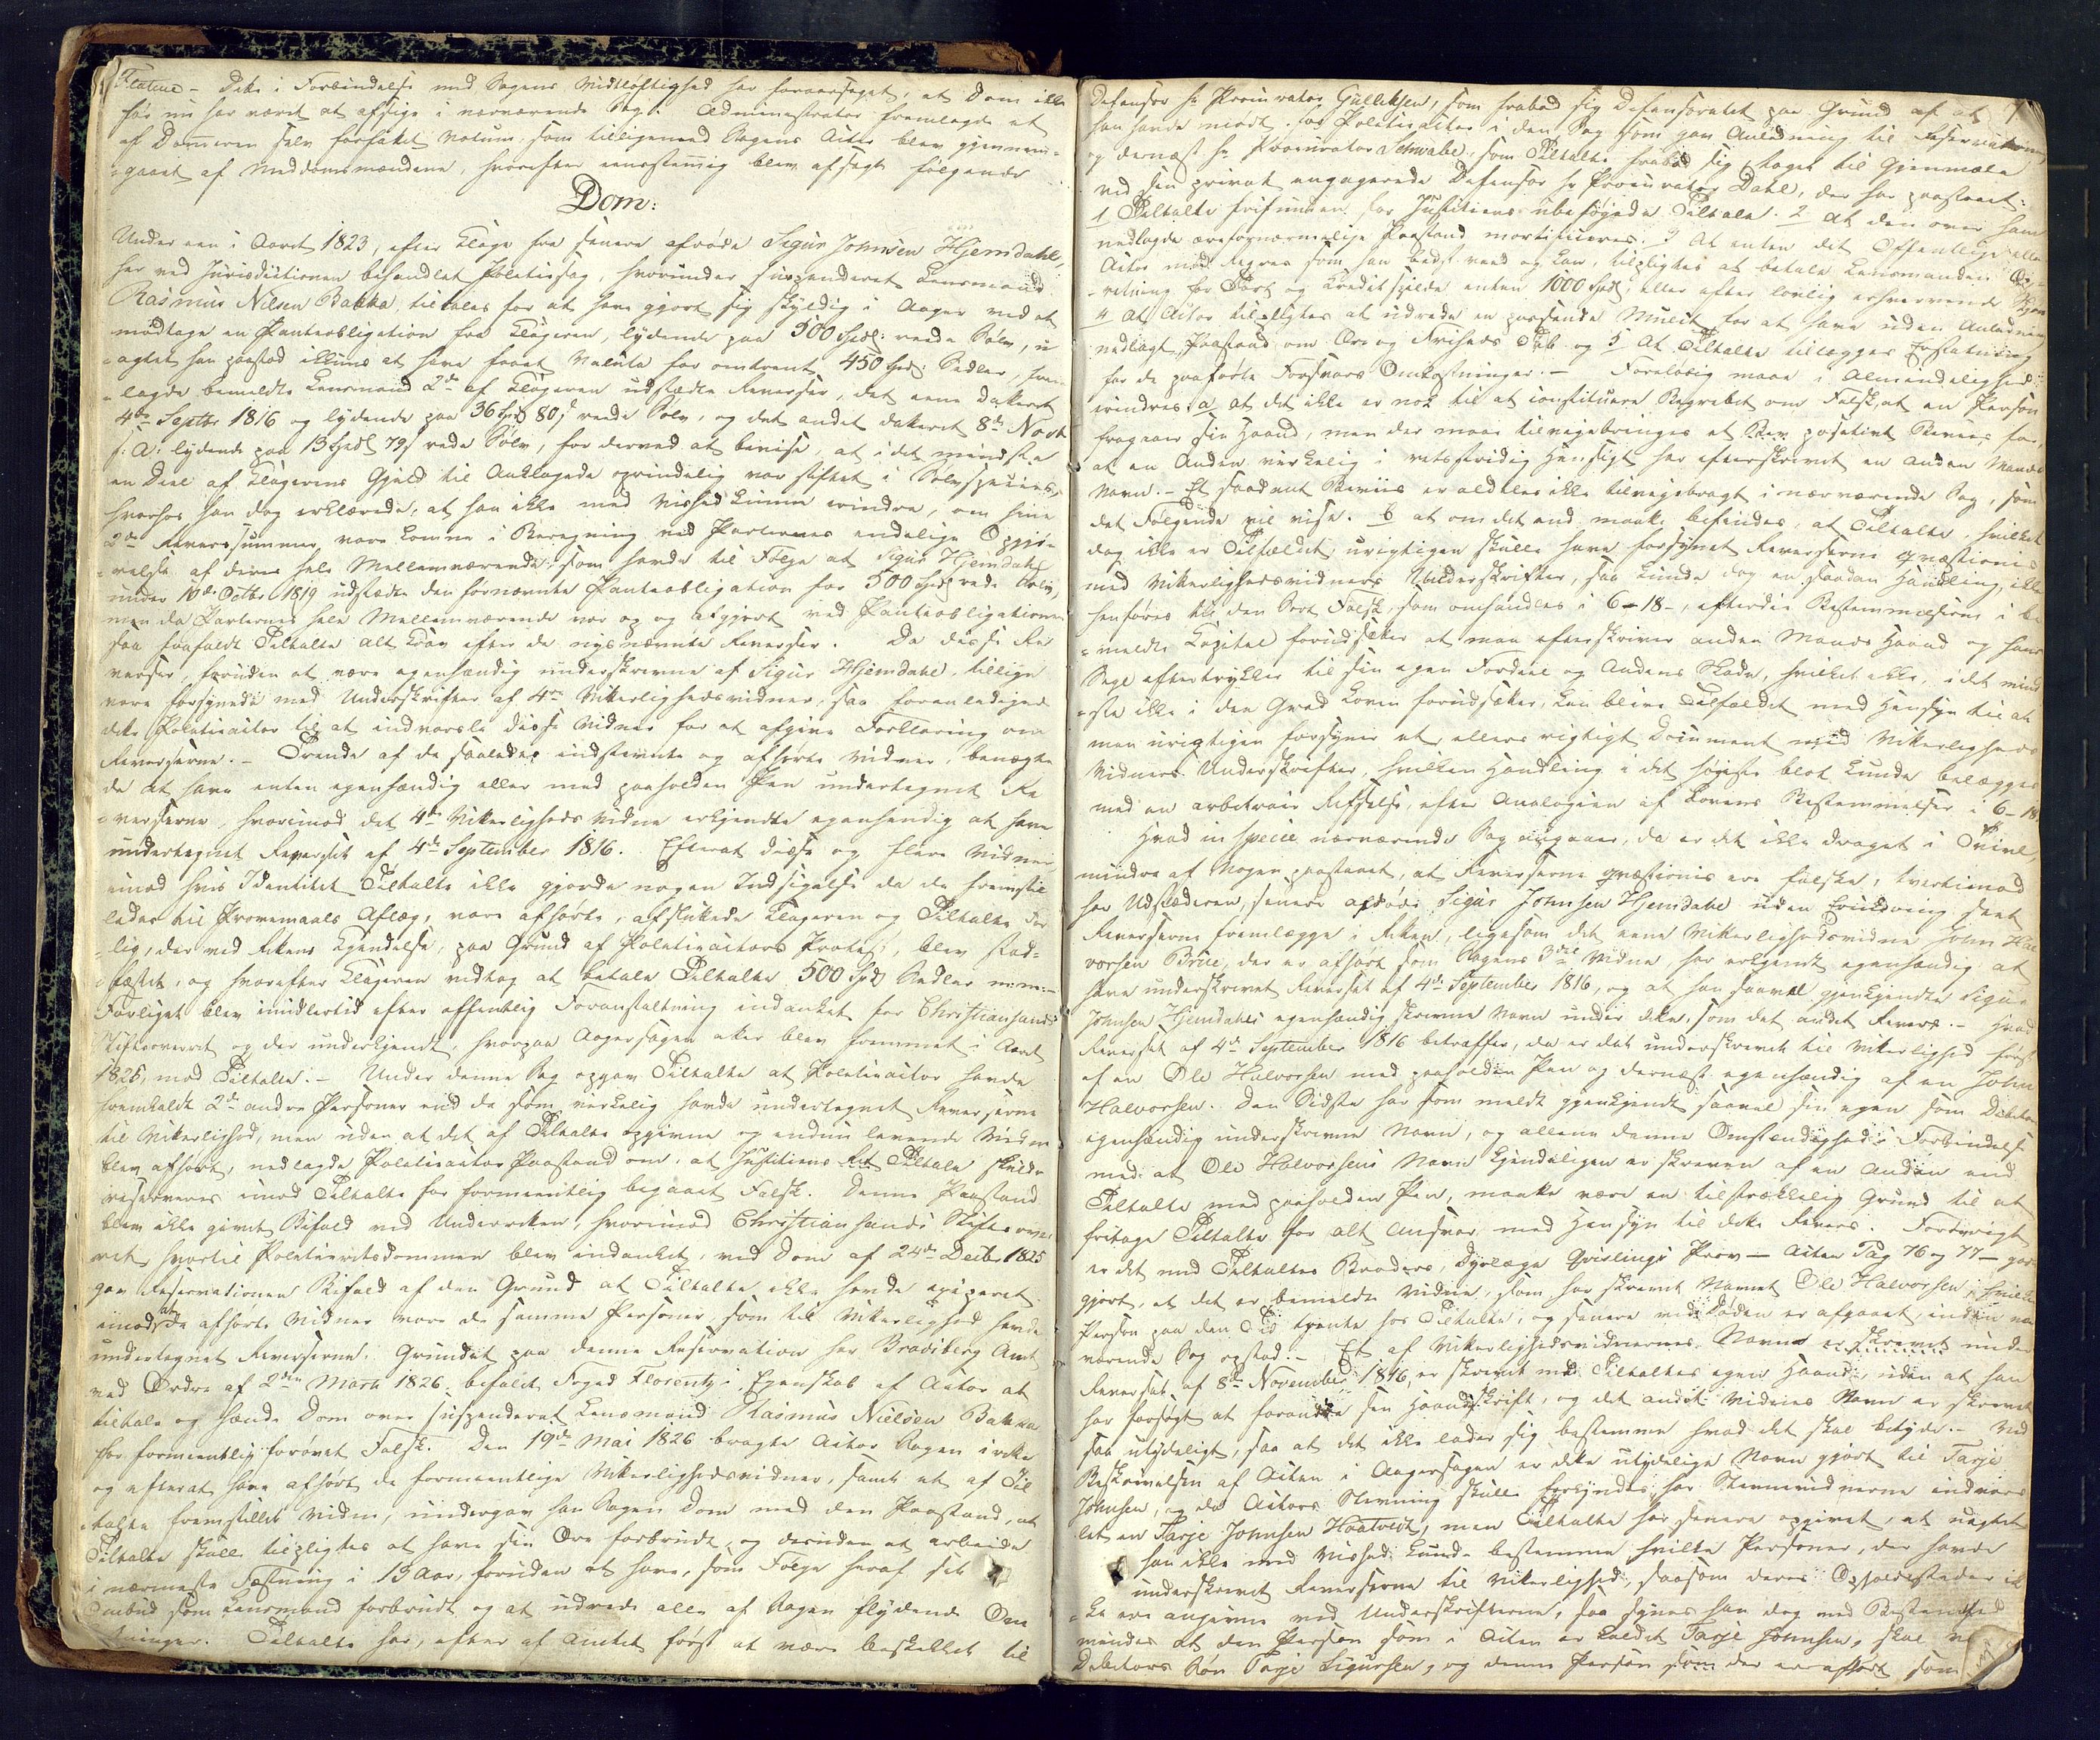 Flatene – Dette i Forbindelse med Sagens Vidtløftighed har foraarsaget, at Dom ikke
før nu har været at afsige i nærværende Sag. Administrator fremlagde et
af Dommeren selv forfattet Votum, som tilligemed Sagens Acter blev gjennem-
gaaet af Meddomsmændene, hvorefter eenstemmig blev afsagt følgende
Dom:
Under een i Aaret 1823, efter Klage fra senere afdøde Sigur Johnsen Hjemdahl,
her ved Jurisdictionen behandlet Politiesag, hvorunder suspenderet Lensmand
Rasmus Nilsen Bakka, tiltales for at have gjort sig skyldig i Aager ved at
modtage en Panteobligation fra Klageren, lydende paa 500 Spdl: rede Sølv, u-
agtet han paastod ikkuns at have faaet Valuta for omtrent 450 Spd: Sedler, frem-
lagde bemeldte Lensmand 2de af Klageren udstædte Reverser, det eene dateret
4de Septbr 1816 og lydende paa 36 Spd 80 s rede Sølv, og det andet dateret 8de Novb
s: A: lydende paa 13 Spdl 79 s rede Sølv, for derved at bevise, at i det mindste
en Deel af Klagerens Gjæld til Anklagede oprindelig var stiftet i Sølvspecies,
hvorhos han dog erklærede, at han ikke med Vished kunne erindre, om hine
2de Reverssummer vare komne i Beregning ved Parternes endelige Opgjø-
relse af deres hele Mellemværende, som havde til Følge at Sigur Hjemdahl
under 10de Octbr 1819 udstædte den fornævnte Panteobligation for 500 Spd rede Sølv,
men da Parternes hele Mellemværende var op og afgjort ved Panteobligationen
saa frafaldt Tiltalte alt Krav efter de nysnævnte Reverser. Da disse Re
verser, foruden at være egenhændig underskrevne af Sigur Hjemdahl, tillige
vare forsynede med Underskrifter af 4re Vitterlighedsvidner, saa foranledigede
dette Politieactor til at indvarsle disse Vidner for at afgive Forklaring om
Reverserne. – Trende af de saaledes indstævnte og afhørte Vidner, benægte
de at have enten egenhændig eller med paaholden Pen undertegnet Re
verserne, hvorimod det 4de Vitterligheds Vidne erkjendte egenhændig at have
undertegnet Reverset af 4de September 1816. Efterat disse og flere Vidner,
imod hvis Identitet Tiltalte ikke gjorde nogen Indsigelse da de fremstil
ledes til Provemaals Aflæg, vare afhørte, afsluttede Klageren og Tiltalte For
lig, der ved Rettens Kjendelse, paa Grund af Politieactors Protest, blev stad-
fæstet, og hvorefter Klageren vedtog at betale Tiltalte 500 Spd Sedler m:m:–
Forliget blev imidlertid efter offentlig Foranstaltning indanket for Christiansands
Stiftsoverret og der underkjendt, hvorpaa Aagersagen atter blev fremmet i Aaret
1825, mod Tiltalte. – Under denne Sag opgav Tiltalte at Politieactor havde
fremkaldt 2de andre Personer end de som virkelig havde undertegnet Reverserne
til Vitterlighed, men uden at det af Tiltalte opgivne og endnu levende Vidne
blev afhørt, nedlagde Politieactor Paastand om, at Justitiens Ret Tiltale skulde
reserveres imod Tiltalte for formeentlig begaaet Falsk. Denne Paastand
blev ikke givet Bifald ved Underretten, hvorimod Christiansands Stiftsover
ret, hvortil Politieretsdommen blev indanket, ved Dom af 24de Decbr 1825
gav Reservationen Bifald af den Grund at Tiltalte ikke havde exiperet
imod at de afhørte Vidner vare de samme Personer, som til Vitterlighed havde
undertegnet Reverserne. Grundet paa denne Reservation har Bradsberg Amt
ved Ordre af 2den Marts 1826 befalet Foged Florentz i Egenskab af Actor at
tiltale og hænde Dom over suspenderet Lensmand Rasmus Nielsen Bakka
for formeentlig forøvet Falsk. Den 19de Mai 1826 bragte Actor Sagen i rette
og efterat have afhørt de formeentlige Vitterlighedsvidner, samt et af Til
talte fremstillet Vidne, undergav han Sagen Dom med den Paastand, at
Tiltalte skulle tilpligtes at have sin Ære forbrudt, og desuden at arbeide
i nærmeste Fæstning i 13 Aar, foruden at have, som Følge heraf, sit
Ombud som Lensmand forbrudt og at udrede alle af Sagen flydende Om
kninger. Tiltalte har, efter af Amtet først at være beskikket til
Defensor Hr Procurator Gulliksen, som frabad sig Defensoratet paa Grund af at
han havde mødt for Politieactor i den Sag som gav Anledning til Reservationen
og dernæst Hr Procurator Schwabe, som Tiltalte frabad sig, taget til Gjenmæle
ved sin privat engagerede Defensor Hr Procurator Dahl, der har paastaaet:
1 Tiltalte frifunden for Justitiens ubeføyede Tiltale. 2 at den over ham
nedlagde ærefornærmelige Paastand mortificeres. 3 At enten det Offentlige eller
Actor mod Regres som han bedst veed og kan, tilpligtes at betale Lensmanden Op-
retning for Tort og Creditspilde enten 1000 Spdl, eller efter lovlig erhvervende Skjøn
4 At Actor tilpligtes at udrede en passende Mulct for at have uden Anledning
nedlagt Paastand om Ære og Friheds Tab og 5 At Tiltalte tillægges Erstatning
for de paaførte Forsvars Omkostninger. – Foreløbig maae i Almindelighed
erindres: a at det ikke er nok til at constituere Begrebet om Falsk, at en Person
fragaaer sin Haand, men der maae tilveiebringes et Bev positivt Beviis for,
at en Anden virkelig i retsstridig Hensigt har efterskrevet en anden Mands
Navn. – Et saadant Beviis er aldeles ikke tilveiebragt i nærværende Sag, som
det Følgende vil vise. b at om det end maatte befindes, at Tiltalte, hvilket
dog ikke er Tilfældet, urigtigen skulle have forsynet Reverserne qvæstionis
med Vitterlighedsvidners Underskrifter, saa kunde dog en saadan Handling, ikke
henføres til den Sort Falsk, som omhandles i 6–18–, efterdi Bestemmelserne i be
meldte Capitel forudsætter at man efterskriver anden Mands Haand og hans
Segl eftertrykker til sin egen Fordeel og Andens Skade, hvilket ikke, i det mind
ste ikke i den Grad Loven forudsætter, kan blive Tilfældet med Hensyn til at
man urigtigen forsyner et ellers rigtigt Document med Vitterligheds
Vidners Underskrifter, hvilken Handling i det høieste blot kunde belægges
med en arbitrair Refselse, efter Analogien af Lovens Bestemmelser i 6–18
Hvad in specie nærværende Sag angaaer, da er det ikke draget i Tvivl,
mindre af Nogen paastaaet, at Reverserne qvæstionis ere falske; tvertimod
har Udstæderen, senere afdøde Sigur Johnsen Hjemdahl uden Erindring seet
Reverserne fremlægge i Retten, ligesom det eene Vitterlighedsvidne John Hal
vorsen Bråe, der er afhørt som Sagens 3die Vidne, har erkjendt egenhændig at
have underskrevet Reverset af 4de September 1816, og at han saavel gjenkjendte Sigur
Johnsen Hjemdahls egenhændig skrevne Navn under dette, som det andet Revers. – Hvad
Reverset af 4de September 1816 betræffer, da er det underskrevet til Vitterlighed først
af en Ole Halvorsen med paaholden Pen og dernæst egenhændig af en John
Halvorsen. Den Sidste har som meldt gjenkjendt saavel sin egen som Debitors
egenhændig underskrevne Navn, og allene denne Omstændighed i Forbindelse
med at Ole Halvorsens Navn kjendeligen er skreven af en Anden end
Tiltalte med paaholden Pen, maatte være en tilstrækkelig Grund til at
fritage Tiltalte for alt Ansvar med Hensyn til dette Revers. Forøvrigt
er det med Tiltaltes Broders, Dyrlæge Qvislings Prov – Acten Pag 76 og 77 – god
gjort, at det er bemeldte Vidne, som har skrevet Navnet Ole Halvorsen, hvilken
Person paa den Tid tjente hos Tiltalte, og senere ved Døden er afgaaet, inden nær
værende Sag opstod. – Et af Vitterlighedsvidnernes Navne er skrevet under
Reverset af 8de November 1816, er skrevet med Tiltaltes egen Haand, uden at han
har forsøgt at forandre sin Haandskrift, og det andet Vidnes Navn er skrevet
saa utydeligt, saa at det ikke lader sig bestemme hvad det skal betyde. – Ved
Beskrivelsen af Acten i Aagersagen er dette utydelige Navn gjort til Tarje
Johnsen, og da Actors Stevning skulle forkyndes, har Stevnevidnerne indvars
let en Tarje Johnsen Haatveit, men Tiltalte har senere opgivet, at uagtet
han ikke med Vished kunde bestemme hvilke Personer, der havde
underskrevet Reverserne til Vitterlighed, saasom deres Opholdssteder ik
ke ere angivne ved Underskrifterne, saa synes han dog med Bestemthed
mindes at den Person som i Acten er kaldet Tarje Johnsen, skal være
Debitors Søn Tarje Sigursen, og denne Person som der er afhørt som